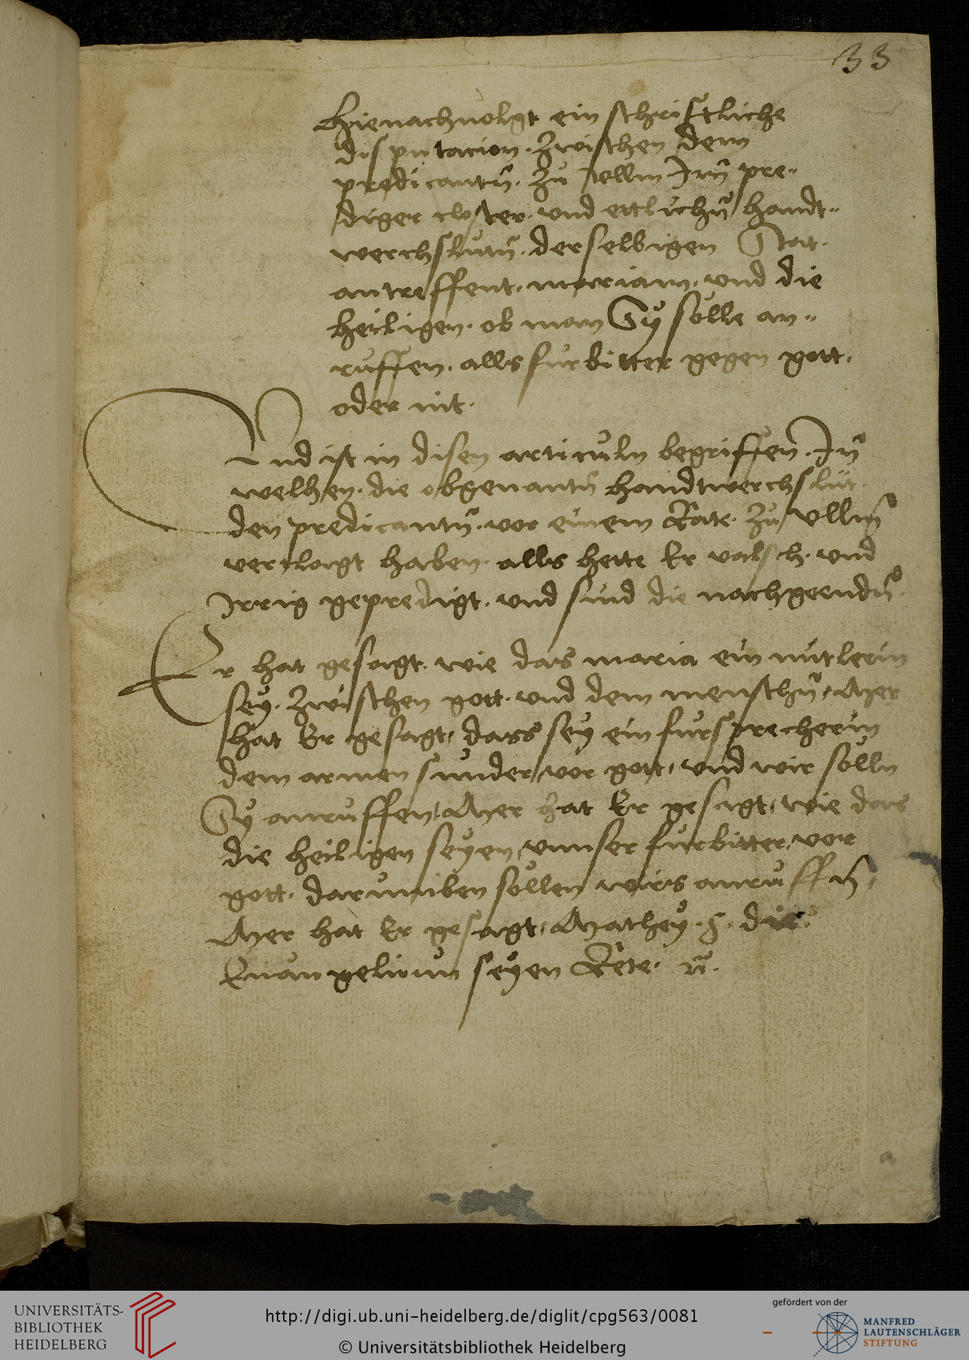 33
Hienachuolgt ein schrifftliche
disputacion. zwischen dem
predicantn̄. zu vllm Inn̄ pre-
diger closter. vnd ettlichn̄ handt-
werchslutn̄. derselbigen Stat.
antreffent. mariam. vnd die
heiligen. ob man Sy sölle an-
ruffen. alls furbitter gegen gott.
oder nit.
Vnd ist in disen articuln begriffen. In̄
welhen. die obgenantn̄ handtwerchslut
den predicantn̄. vor einem Rate. zu vllm̄
verclagt haben. alls hette Er valsch. vnd
Irrig gepredigt. vnd sind die nachgeendn̄.
Er hat gesagt. wie das maria ein mitlerin
sey. zwischen gott. vnd dem menschn̄, Mer
hat Er gesagt, dass sey ein fursprecherin
dem armen sunder vor gott, vnd wir sölln
Sy anruffen, Mer hat Er gesagt, wie das
die heiligen seyen vnnser furbitter vor
gott. darumben söllen wirs anruffn̄,
Mer hat Er gesagt, Mathey. 5. die
Euangelium seyen Rete. n̄.
UNIVERSITÄTS-
BIBLIOTHEK
HEIDELBERG
http://digi.ub.uni-heidelberg.de/diglit/cpg563/0081
© Universitätsbibliothek Heidelberg
gefördert von der
MANFRED
LAUTENSCHLÄGER
STIFTUNG